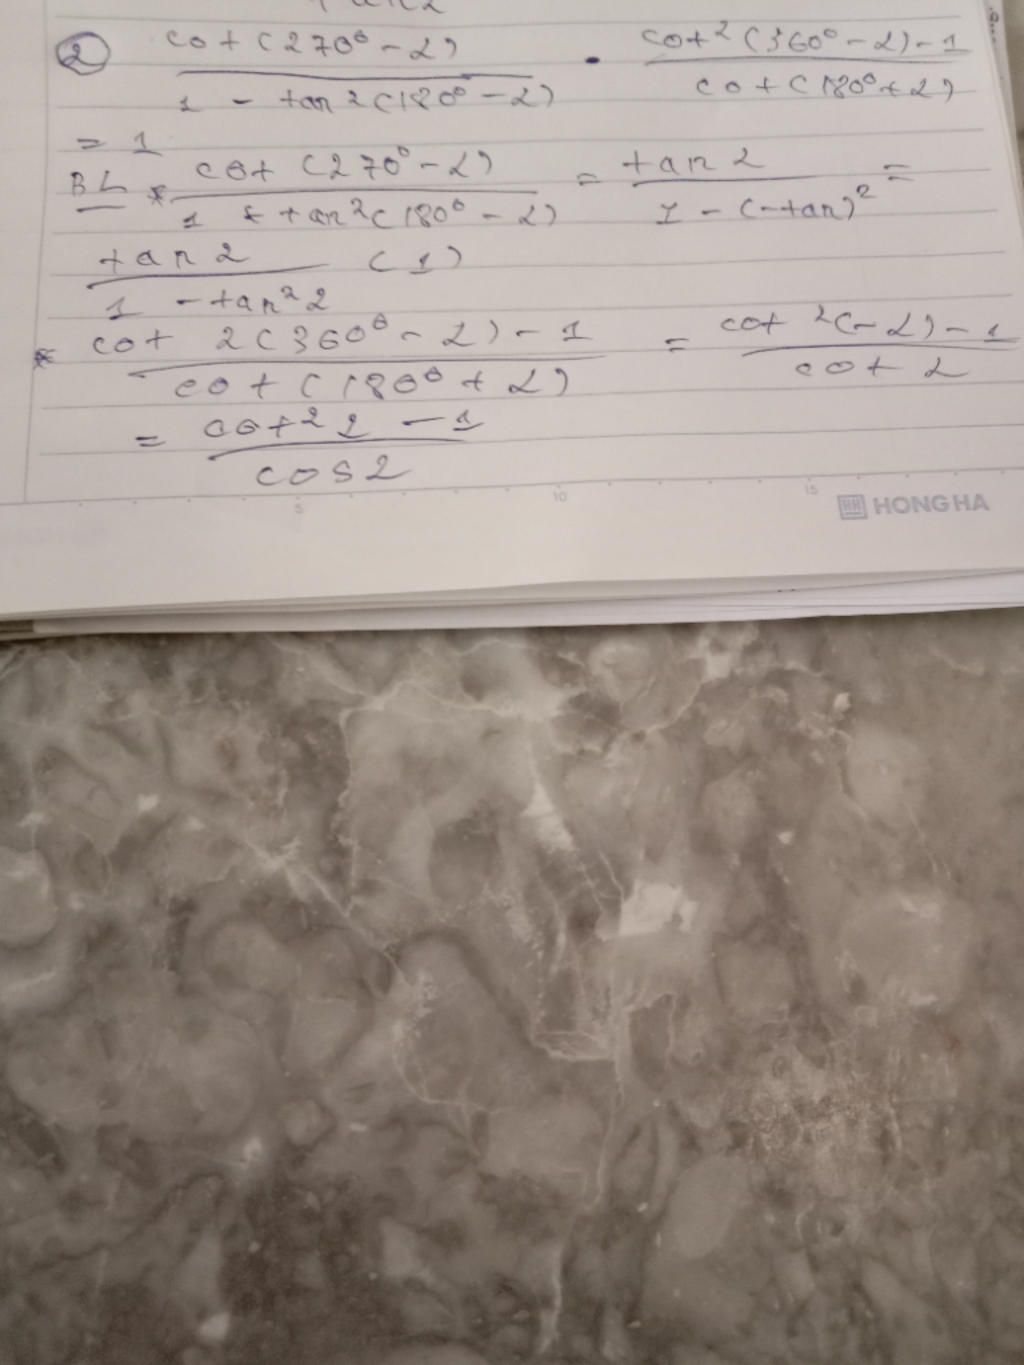 ② cot(270° - α) / 1 - tan²(180° - α) . cot²(360° - α) - 1 / cot(180° + α)
= 1
BL * cot(270° - α) / 1 - tan²(180° - α) = tan α / 1 - (-tan)² =
tan α / 1 - tan² α (1)
* cot²(360° - α) - 1 / cot(180° + α) = cot²(-α) - 1 / cot α
= cot² α - 1 / cos α
5 10 15
HH HONG HA